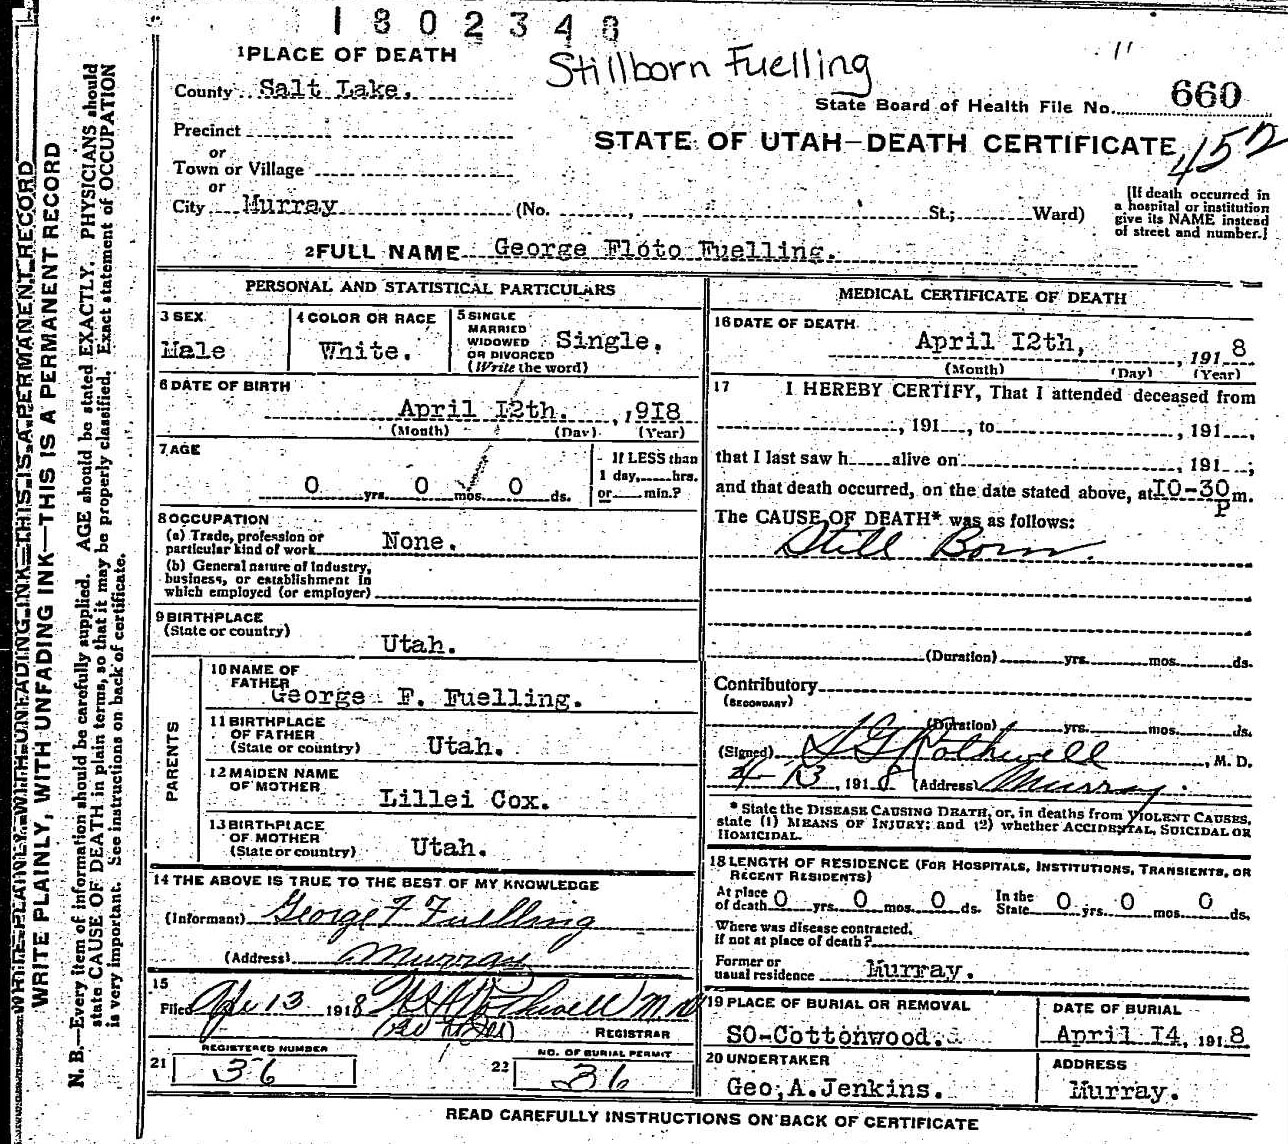 1802348
Stillborn Fuelling
"
1 PLACE OF DEATH
County Salt Lake.
State Board of Health File No. 660
Precinct
STATE OF UTAH—DEATH CERTIFICATE
or
Town or Village
or
City Murray (No. , St.; Ward)
[If death occurred in
a hospital or institution
give its NAME instead
of street and number.]
2 FULL NAME George Floto Fuelling.
PERSONAL AND STATISTICAL PARTICULARS
3 SEX
Male
4 COLOR OR RACE
White.
5 SINGLE
MARRIED
WIDOWED
OR DIVORCED
(Write the word)
Single.
6 DATE OF BIRTH
April I2th. , 9I8
(Month) (Day) (Year)
7 AGE
0 yrs. 0 mos. 0 ds.
If LESS than
1 day, hrs.
or min.?
8 OCCUPATION
(a) Trade, profession or
particular kind of work None.
(b) General nature of Industry,
business, or establishment in
which employed (or employer)
9 BIRTHPLACE
(State or country)
Utah.
PARENTS
10 NAME OF
FATHER
George F. Fuelling.
11 BIRTHPLACE
OF FATHER
(State or country) Utah.
12 MAIDEN NAME
OF MOTHER
Lillei Cox.
13 BIRTHPLACE
OF MOTHER
(State or country) Utah.
14 THE ABOVE IS TRUE TO THE BEST OF MY KNOWLEDGE
(Informant) George F Fuelling
(Address) Murray
15
Filed Apr 13 1918
REGISTRAR
REGISTERED NUMBER
21 36
NO. OF BURIAL PERMIT
22 36
MEDICAL CERTIFICATE OF DEATH
16 DATE OF DEATH
April I2th, , 191 8
(Month) (Day) (Year)
17 I HEREBY CERTIFY, That I attended deceased from
, 191 , to , 191 ,
that I last saw h alive on , 191 ;
and that death occurred, on the date stated above, at I0-30 m.
P
The CAUSE OF DEATH* was as follows:
Still Born.
(Duration) yrs. mos. ds.
Contributory
(SECONDARY)
(Duration) yrs. mos. ds.
(Signed) Rothwell , M. D.
4-13, 1918 (Address) Murray.
* State the DISEASE CAUSING DEATH, or, in deaths from VIOLENT CAUSES,
state (1) MEANS OF INJURY; and (2) whether ACCIDENTAL, SUICIDAL OR
HOMICIDAL.
18 LENGTH OF RESIDENCE (FOR HOSPITALS, INSTITUTIONS, TRANSIENTS, OR
RECENT RESIDENTS)
At place
of death 0 yrs. 0 mos. 0 ds.
In the
State 0 yrs. 0 mos. 0 ds.
Where was disease contracted,
if not at place of death?
Former or
usual residence Murray.
19 PLACE OF BURIAL OR REMOVAL
SO-Cottonwood.
DATE OF BURIAL
April I4, 191 8
20 UNDERTAKER
Geo, A. Jenkins.
ADDRESS
Murray.
READ CAREFULLY INSTRUCTIONS ON BACK OF CERTIFICATE
WRITE PLAINLY, WITH UNFADING INK—THIS IS A PERMANENT RECORD
WRITE PLAINLY, WITH UNFADING INK—THIS IS A PERMANENT RECORD
N. B.—Every item of information should be carefully supplied. AGE should be stated EXACTLY. PHYSICIANS should
state CAUSE OF DEATH in plain terms, so that it may be properly classified. Exact statement of OCCUPATION
is very important. See instructions on back of certificate.